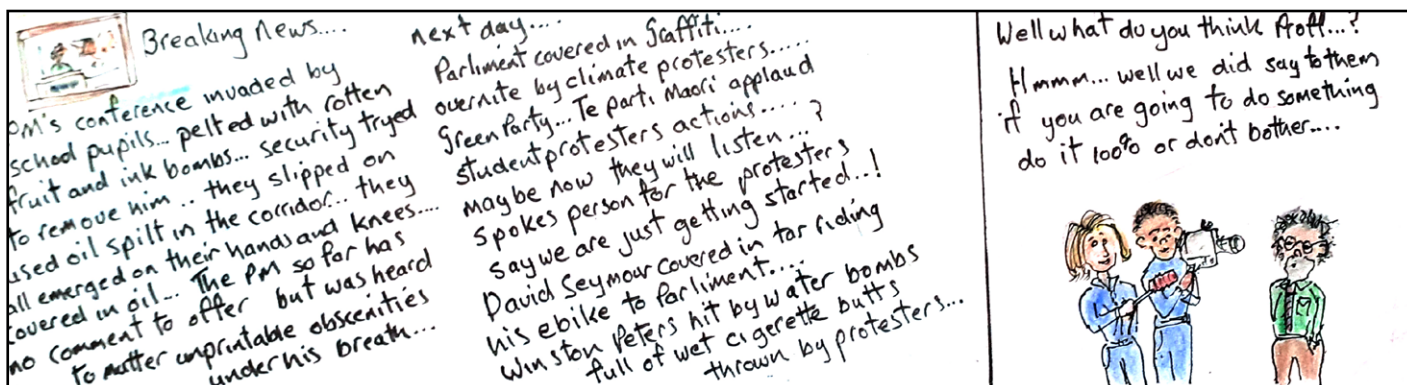 Breaking News....
PM's conference invaded by
school pupils... pelted with rotten
fruit and ink bombs... security tryed
to remove him.. they slipped on
used oil spilt in the corridor.. they
all emerged on their hands and knees....
covered in oil... The PM so far has
no comment to offer but was heard
to mutter unprintable obscenities
under his breath...
next day....
Parliment covered in Graffiti....
overnite by climate protesters.....
Green Party... Te parti Maori applaud
student protesters actions.....
maybe now they will listen...?
Spokes person for the protesters
say we are just getting started..!
David Seymour covered in tar riding
his ebike to Parliment....
Winston Peters hit by water bombs
full of wet cigerette butts
thrown by protesters...
Well what do you think Proff...?
Hmmm... well we did say to them
if you are going to do something
do it 100% or don't bother....